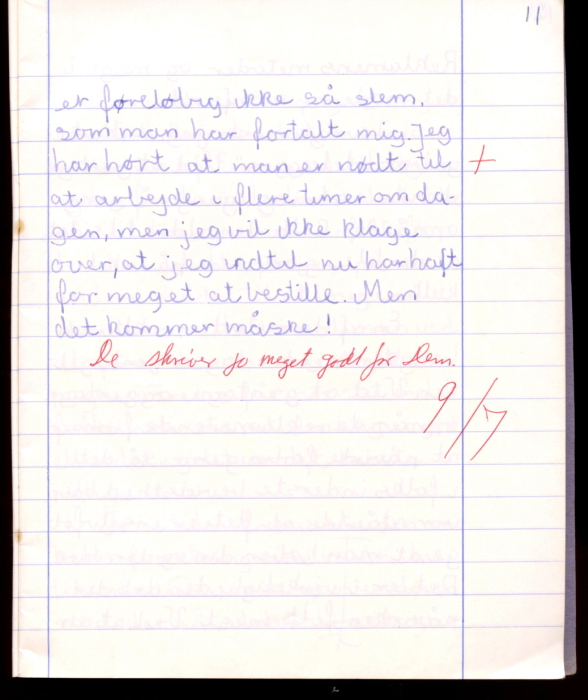 11
er foreløbig ikke så slem,
som man har fortalt mig. Jeg
har hørt at man er nødt til
+
at arbejde i flere timer om da-
gen, men jeg vil ikke klage
over, at jeg indtil nu har haft
for meget at bestille. Men
det kommer måske!
De skriver jo meget godt for Dem.
9/7